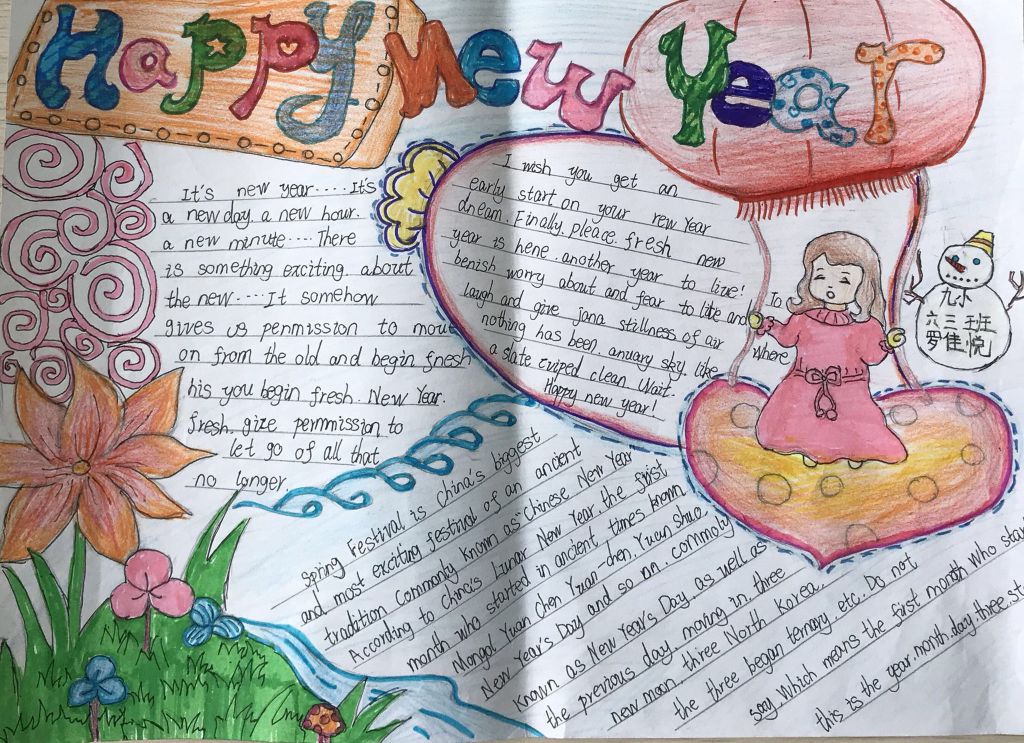 Happy New Year
It's new year....It's
a new day. a new hour.
a new minute....There
is something exciting. about
the new....It somehow
gives us permission to mout
on from the old and begin fnesh
his you begin fresh. New Year.
fresh. gize permission to
let go of all that
no longer
I wish you get an
early start on your new Year
dream. Finally, pleace. fresh new
year is hene. another year to live!
benish worry about and fear to lite and
laugh and give jona stillness of air
nothing has been. anuary sky. like
a slate ciped clean Wait.
Happy new year!
To
where
九小
六三班
罗佳悦
Spring Festival is China's biggest
and most exciting festival of an ancient
tradition Commonly known as "Chinese New Year
According to China's Lunar New Year. the first
month, who started in ancient times known
Mongol Yuan chen Yuan-chen, Yuan shuo,
New Year's Day and so nn. commoly
known as New Year's Day. as well as
the previous day. moving in. three
new moon, three North Korea.
the three began ternary. etc. Do not
say. Which means the first month who star
this is the year. month. day. three. st